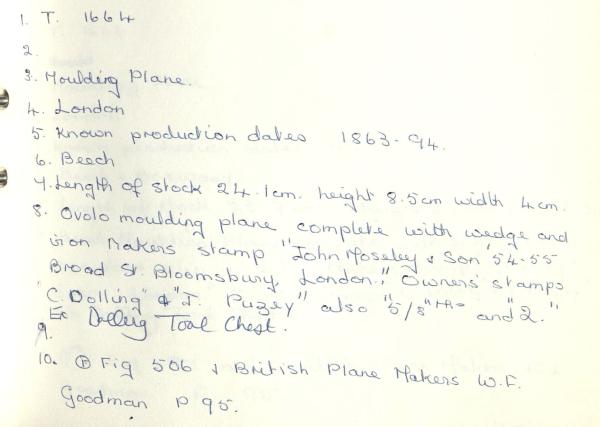 1. T. 1664
2.
3. Moulding Plane.
4. London
5. Known production dates 1863-94.
6. Beech
7. Length of stock 24.1cm. height 8.5cm width 4cm.
8. Ovolo moulding plane complete with wedge and
iron Makers stamp "John Moseley & Son 54-55
Broad St. Bloomsbury, London." Owners' stamps
"C. Dolling" & "J. Puzey" also "5/8" and "2."
Ex Dolling Tool Chest.
9.
10. Fig 506 & British Plane Makers W.F.
Goodman P 95.